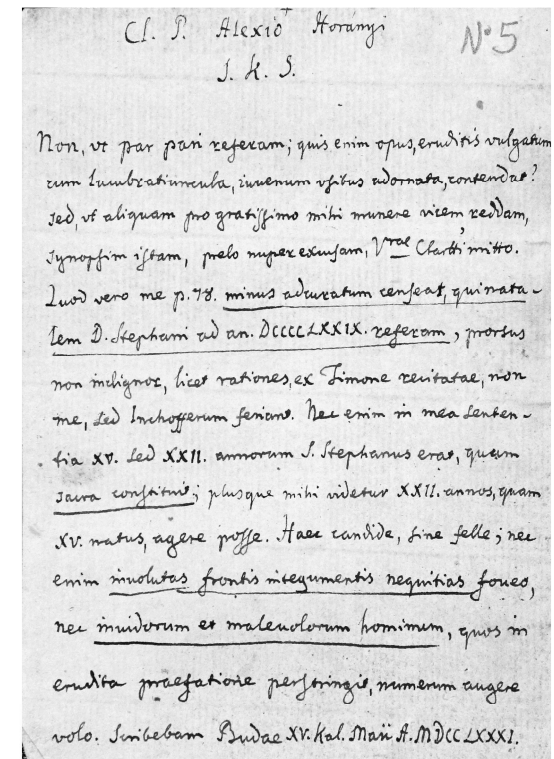 Cl. P. Alexio Horányi
N 5
S. K. S.
Non, vt par pari referam; quis enim opus, eruditis vulgatum
cum lucubratiuncula, iuvenum vsibus adornata, contendat?
sed, vt aliquam pro gratissimo mihi munere vicem reddam,
synopsim istam, prelo nuper exusam, Vrae Clartti mitto.
Quod vero me p. 78. minus adcuratum censeat, qui nata-
lem D. Stephani ad an. DCCCCLXXIX. referam, prorsus
non indignor, licet rationes, ex Timone recitatae, non
me, sed Inchofferum feriant. Nec enim in mea senten-
tia XV. sed XXII. annorum S. Stephanus erat, quum
sacra constituit; plusque mihi videtur XXII. annos, quam
XV. natus, agere posse. Haec candide, sine felle; nec
enim involutas frontis integumentis nequitias foveo,
nec invidorum et malevolorum hominum, quos in
erudita praefatione perstringis, numerum augere
volo. Scribebam Budae XV. Kal. Maii A. MDCCLXXXI.